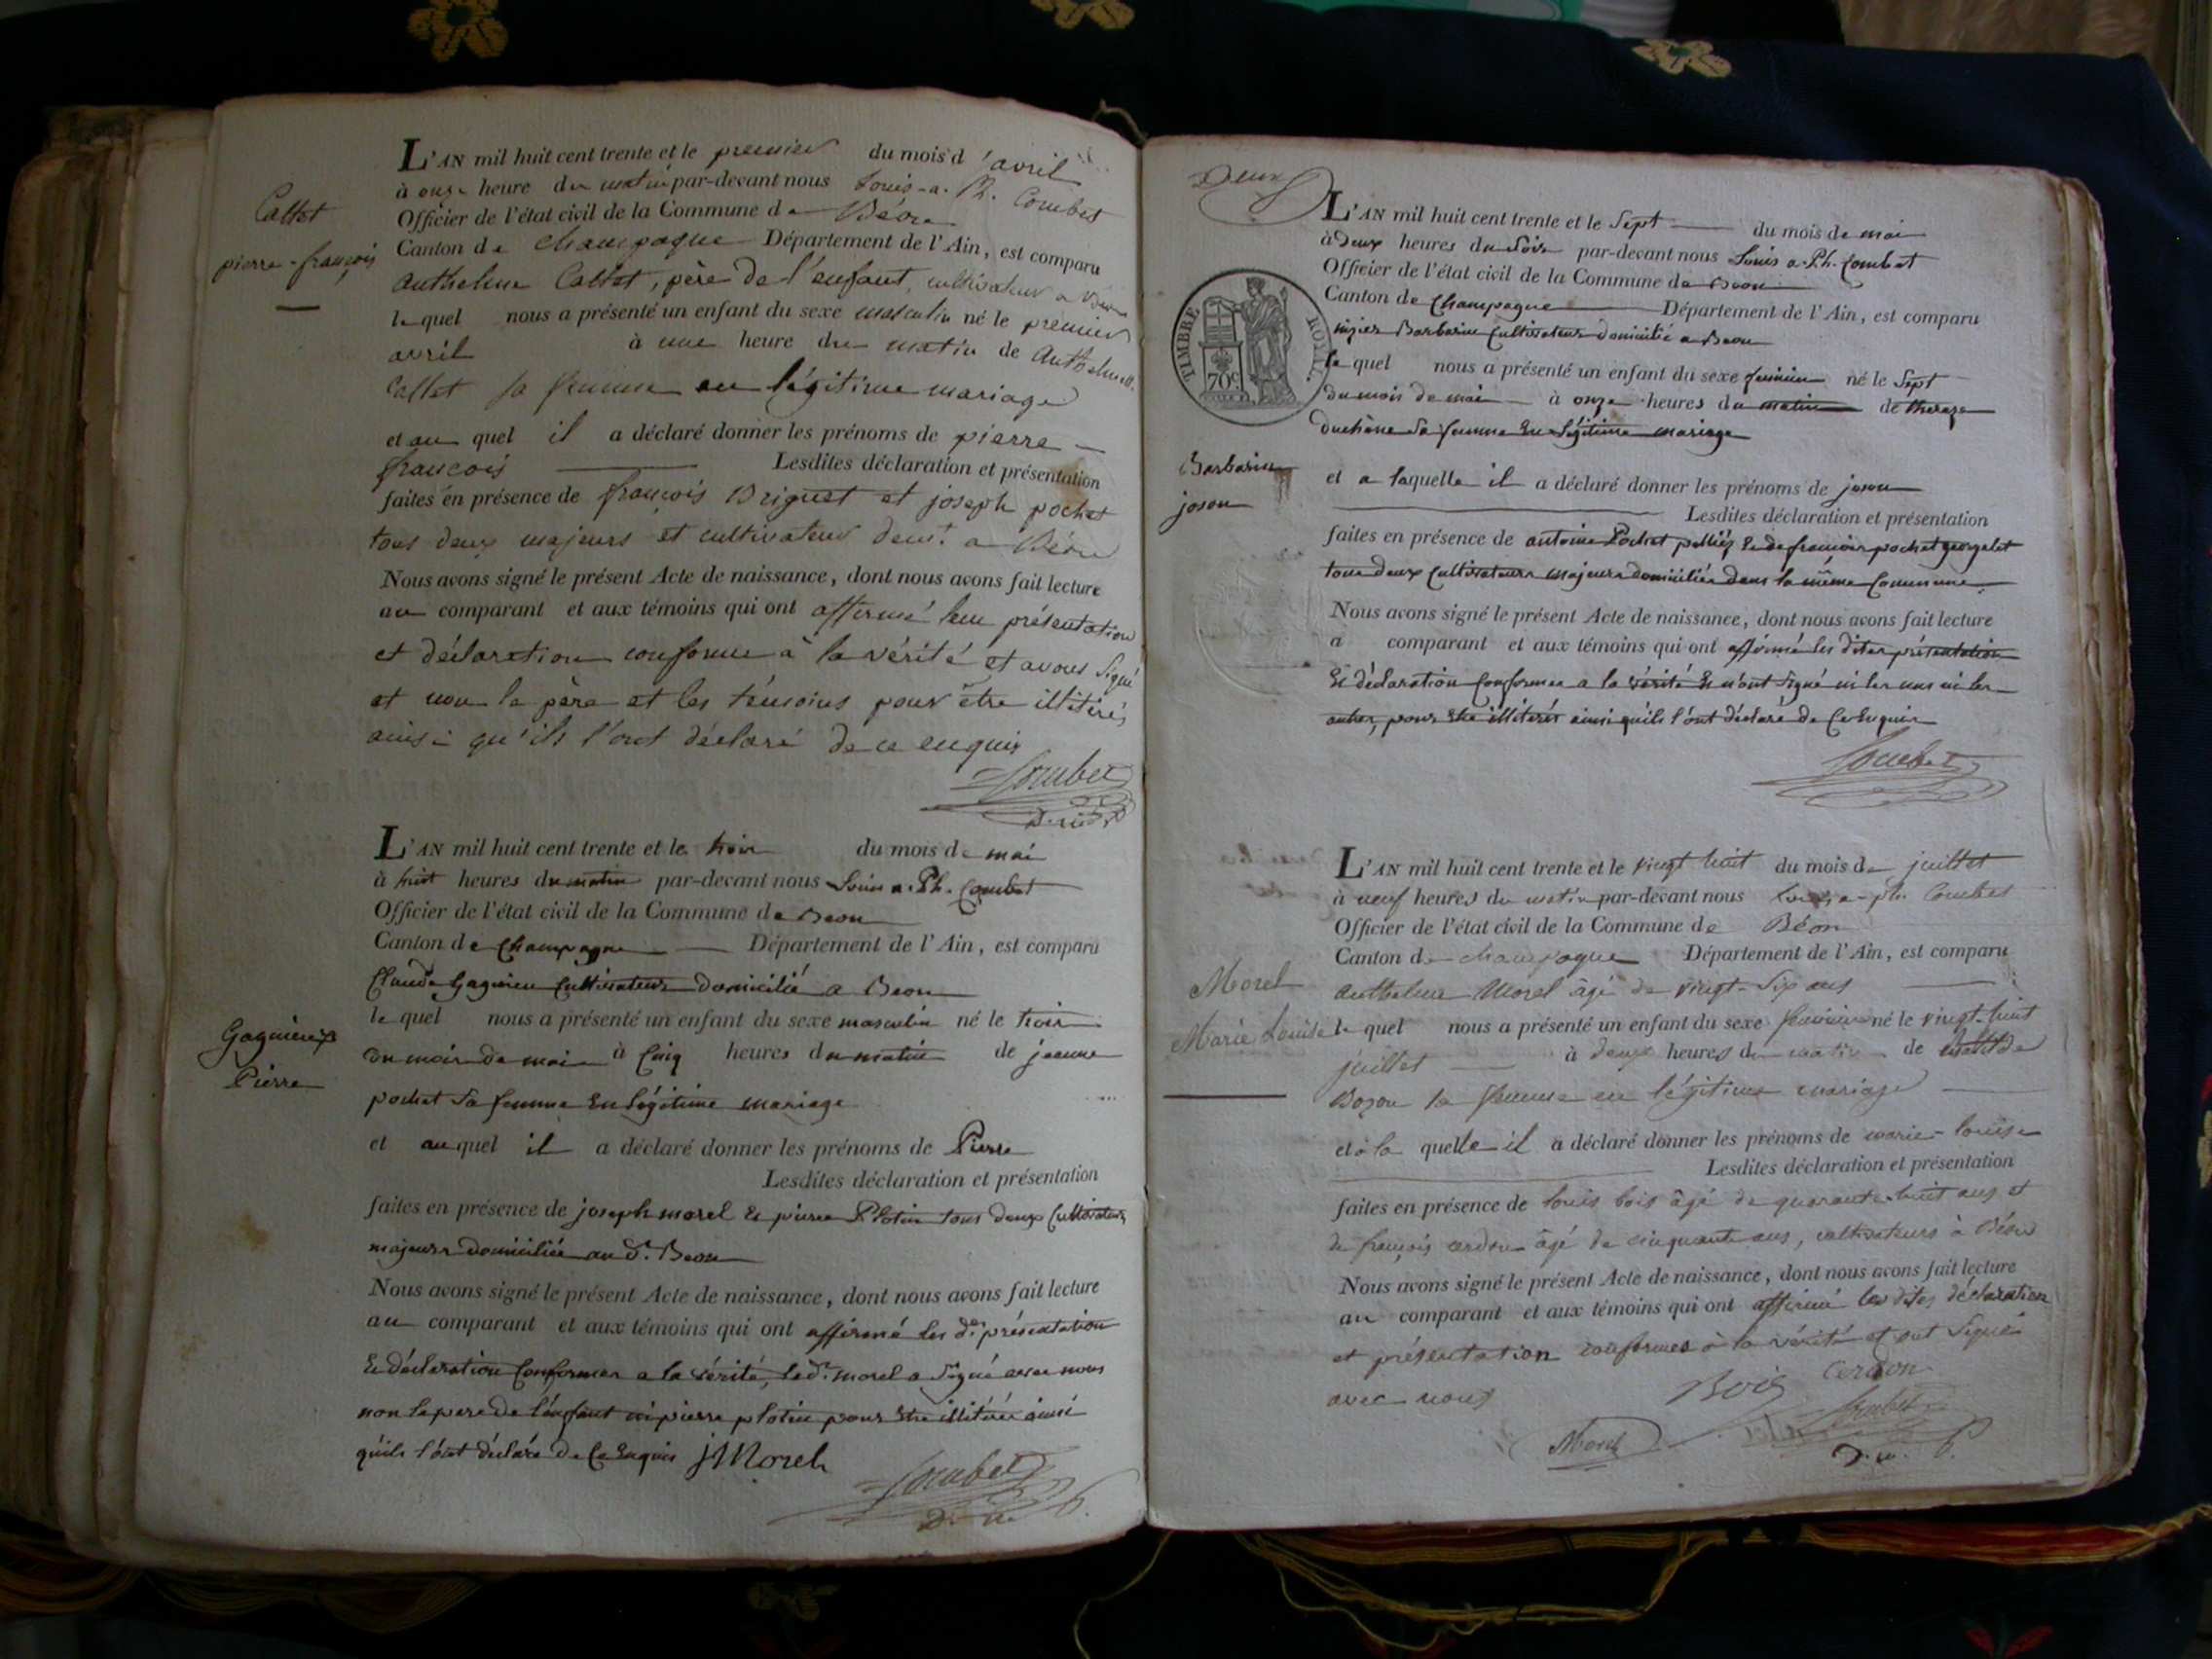 L'AN mil huit cent trente et le premier du mois d'avril
à onze heure du matin par-devant nous Louis-a. Ph. Combet
Officier de l'état civil de la Commune de Béon
Canton de champagne Département de l'Ain, est comparu
Anthelme Callet, père de l'enfant, cultivateur a Béon
le quel nous a présenté un enfant du sexe masculin né le premier
avril à une heure du matin de Anthelmette
Callet sa femme en légitime mariage
et au quel il a déclaré donner les prénoms de pierre
françois Lesdites déclaration et présentation
faites en présence de françois Briguet et joseph pochet
tous deux majeurs et cultivateurs dem.t a Béon
Nous avons signé le présent Acte de naissance, dont nous avons fait lecture
au comparant et aux témoins qui ont affirmé leur présentation
et déclaration conforme à la vérité et avons signé
et non le père et les témoins pour être illitirés
ainsi qu'ils l'ont déclaré de ce enquis
Combet
Callet
pierre-françois
L'AN mil huit cent trente et le trois du mois de mai
à huit heures du matin par-devant nous Louis a. Ph. Combet
Officier de l'état civil de la Commune de Beon
Canton de Champagne Département de l'Ain, est comparu
Claude Gagnieu Cultivateur domicilié a Beon
le quel nous a présenté un enfant du sexe masculin né le trois
du mois de mai à Cinq heures du matin de jeanne
pochet sa femme En légitime mariage
et au quel il a déclaré donner les prénoms de Pierre
Lesdites déclaration et présentation
faites en présence de joseph morel Et pierre Plotin tous deux Cultivateurs
majeurs domiciliés au d. Beon
Nous avons signé le présent Acte de naissance, dont nous avons fait lecture
au comparant et aux témoins qui ont affirmé les d.es présentation
Et déclaration Conformes a la vérité, le d. morel a signé avec nous
non le pere de l'enfant ni pierre plotin pour Etre illitéré ainsi
qu'ils l'ont déclaré de Ce Enquis J Morel
Combet
Pierre
Deux
L'AN mil huit cent trente et le Sept du mois de mai
à Deux heures du Soir par-devant nous Louis a. Ph. Combet
Officier de l'état civil de la Commune de Beon
Canton de Champagne Département de l'Ain, est comparu
nizier Barbarin Cultivateur domicilié a Beon
le quel nous a présenté un enfant du sexe feminin né le Sept
du mois de mai à onze heures du matin de therese
duchêne sa femme En légitime mariage
et a laquelle il a déclaré donner les prénoms de joson
Lesdites déclaration et présentation
faites en présence de antoine Pochet Et de francois pochet
tous deux Cultivateurs majeurs domiciliés dans la même Commune
Nous avons signé le présent Acte de naissance, dont nous avons fait lecture
a comparant et aux témoins qui ont affirmé les dites présentation
Et déclaration Conformes a la vérité Et n'ont signé ni les uns ni les
autres, pour Etre illiterés ainsi qu'ils l'ont déclaré de Ce Enquis
Combet
TIMBRE ROYAL
70c
Barbarin
joson
L'AN mil huit cent trente et le vingt huit du mois de juillet
à neuf heures du matin par-devant nous Louis-a-ph. Combet
Officier de l'état civil de la Commune de Béon
Canton de champagne Département de l'Ain, est comparu
anthelme Morel âgé de vingt-six ans
le quel nous a présenté un enfant du sexe feminin né le vingt-huit
juillet à deux heures du matin de
Bozon sa femme en légitime mariage
et à la quelle il a déclaré donner les prénoms de marie-louise
Lesdites déclaration et présentation
faites en présence de louis bois âgé de quarante huit ans et
de françois cerdon âgé de cinquante ans, cultivateurs à Béon
Nous avons signé le présent Acte de naissance, dont nous avons fait lecture
au comparant et aux témoins qui ont affirmé les dites déclaration
et présentation conformes à la vérité et ont signé
avec nous Bois Cerdon
Morel Combet
Morel
Marie Louise